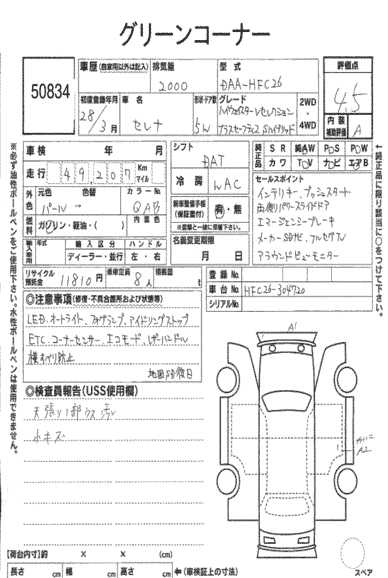 グリーンコーナー
50834
車歴 (自家用以外は記入)
排気量
2000
型式
DAA-HFC26
評価点
4.5
初度登録年月
28/3月
車名
セレナ
ドア
5W
グレード
ハイウェイスターVセレクション
プラスセーフティSハイブリッド
2WD
・
4WD
内装
補助評価
A
車検
年 月
走行
49207
Km
マイル
シフト
DAT
冷房
WAC
純正品
SR 純AW PS PW
カワ TV ナビ エアB
外色
元色 色替 カラーNo.
パール→
QAB
燃料
ガソリン・軽油・( )
内装色
輸入車
年式 輸入区分 ハンドル
ディーラー・並行 左・右
新車整備手帳
(保証書付)
有・無
名義変更期限
月 日
セールスポイント
インテリキー、プッシュスタート
両側パワースライドドア
エマージェンシーブレーキ
メーカーSDナビ、フルセグTV
アラウンドビューモニター
リサイクル預託金
11810円
乗車定員
8人
積載量
t
登録No.
車台No.
HFC26-304720
シリアルNo.
◎注意事項(修復・不具合箇所および状態等)
LED、オートライト、フォグランプ、アイドリングストップ
ETC、コーナーセンサー、エコモード、レザーハンドル
横すべり防止
◎検査員報告(USS使用欄)
天張り1部ウス汚レ
小キズ
A1
A2
【荷台内寸】約 × × (cm)
長さ cm 幅 cm 高さ cm
←(車検証上の寸法)
スペア
※必ず油性ボールペンをご使用下さい。水性ボールペンは使用できません。
←純正品に限り該当に○をつけて下さい。